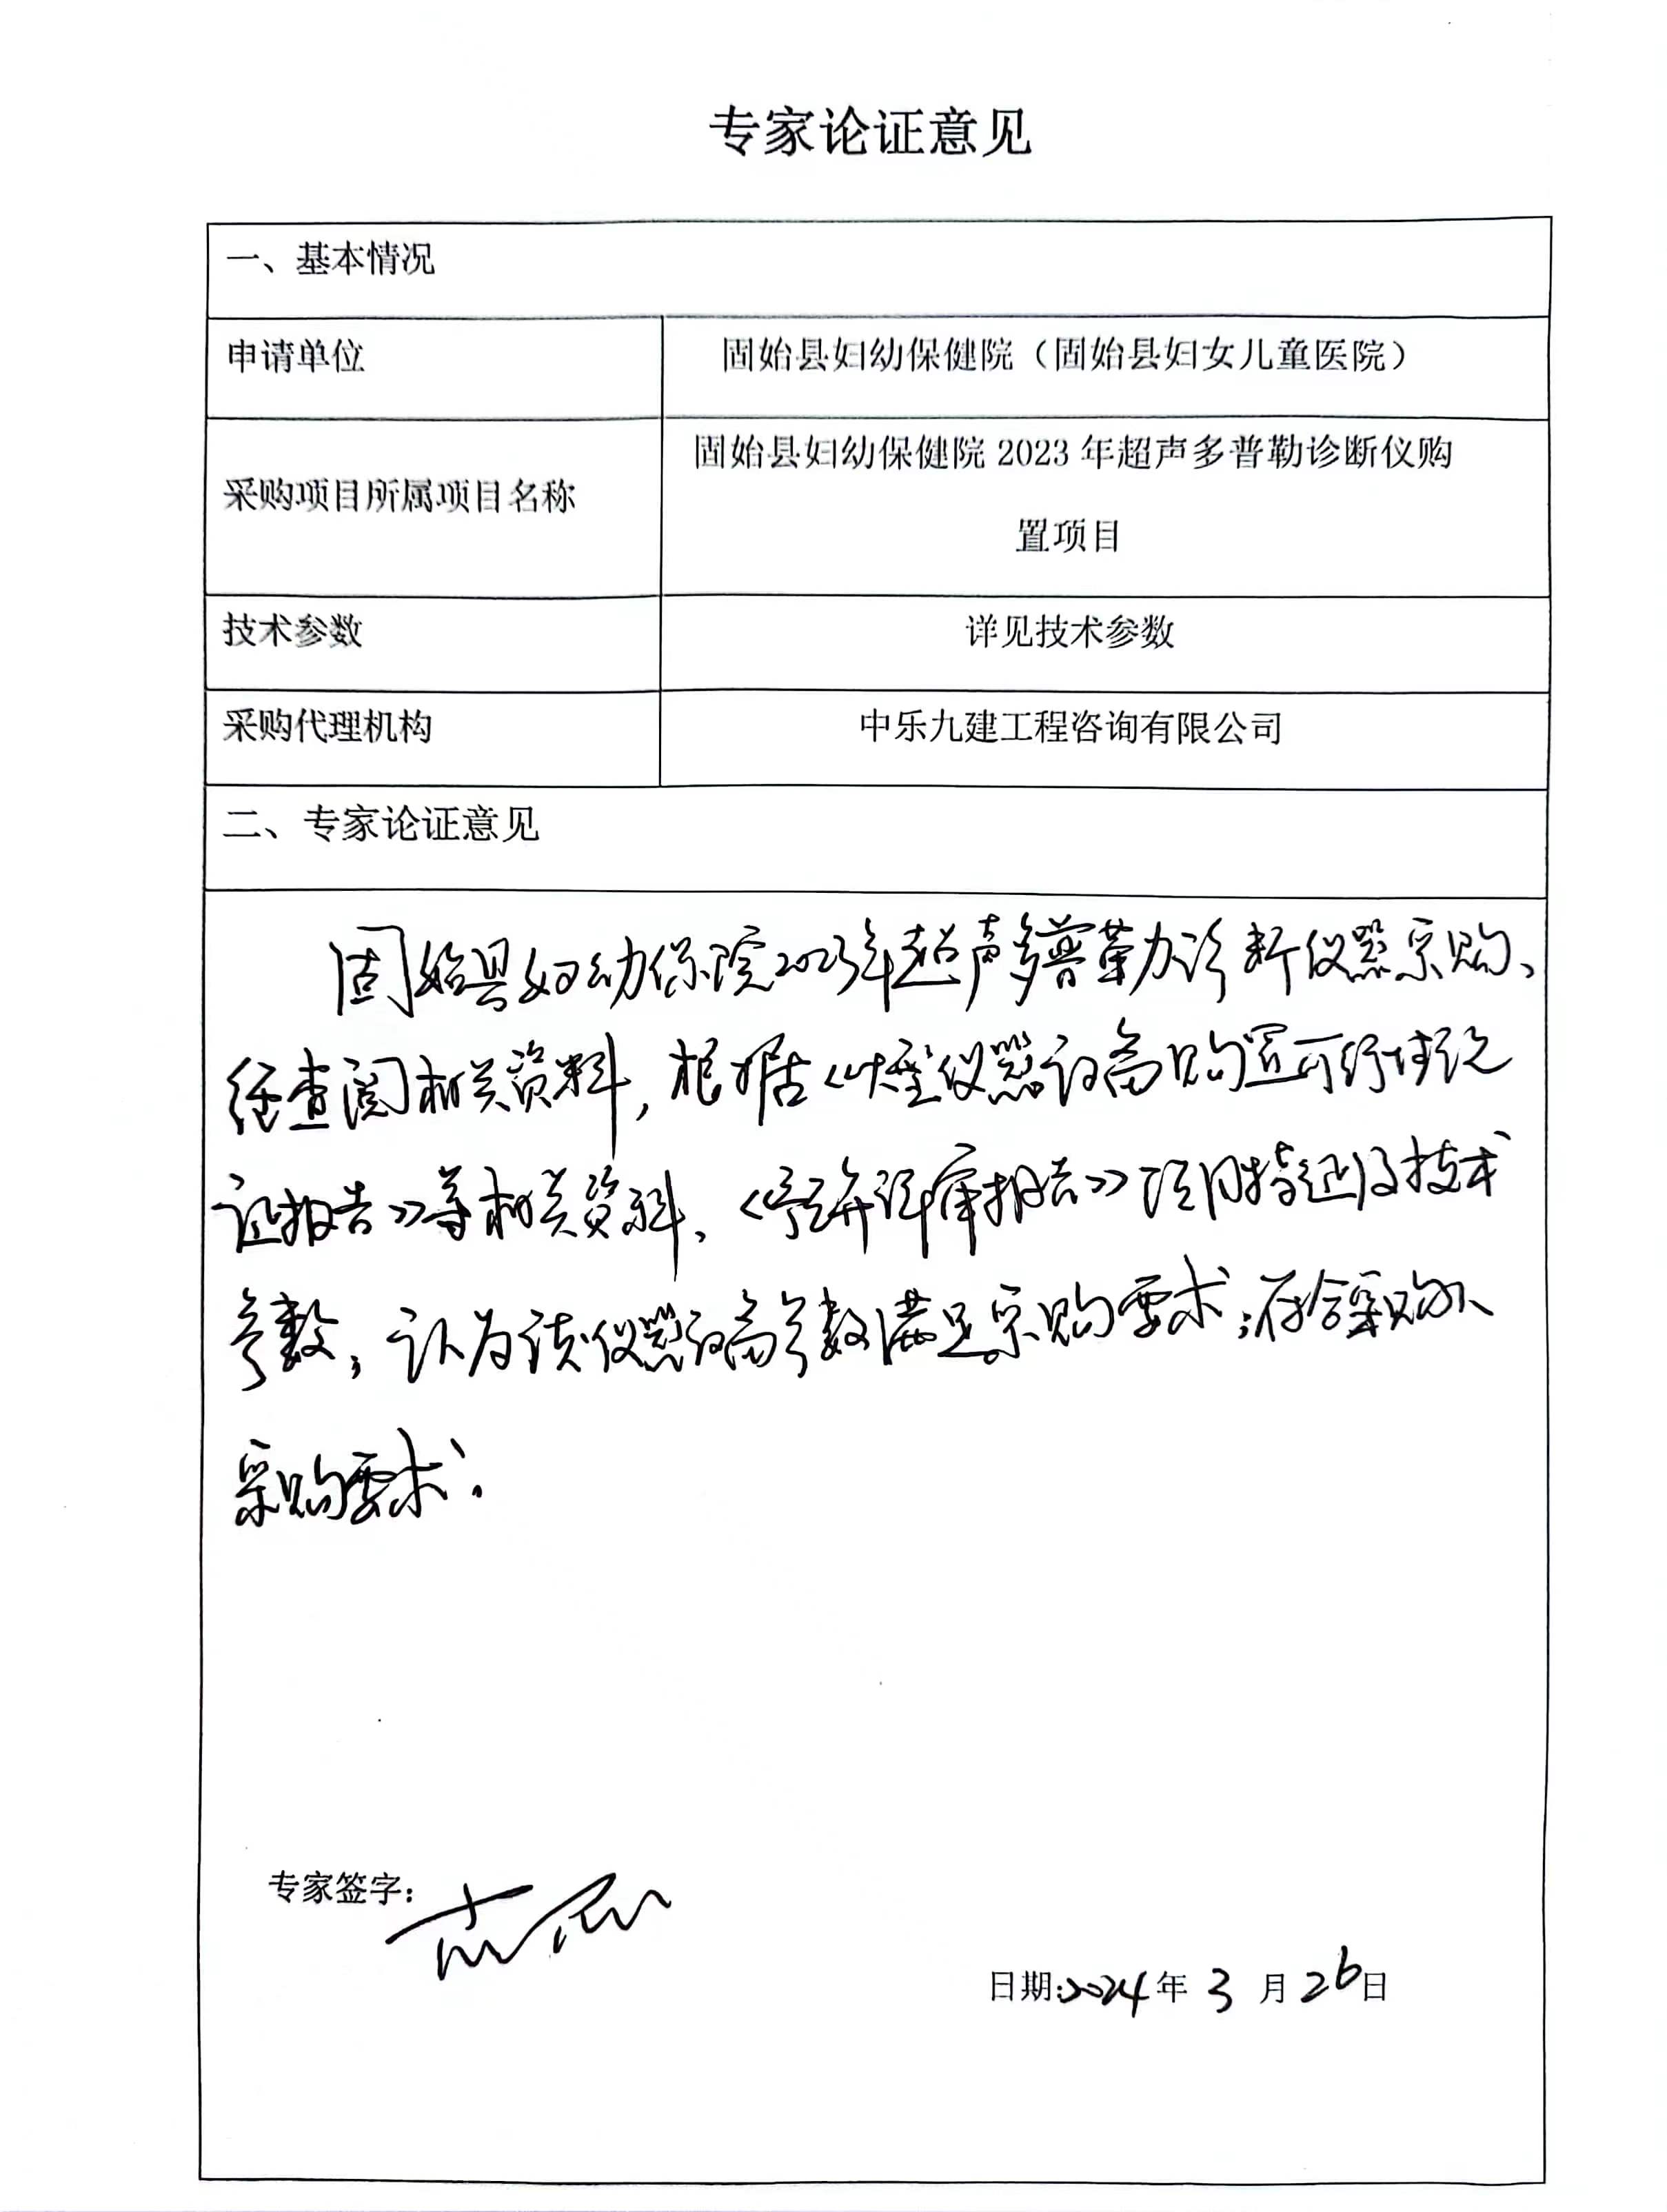 专家论证意见
一、基本情况
申请单位
固始县妇幼保健院（固始县妇女儿童医院）
采购项目所属项目名称
固始县妇幼保健院 2023 年超声多普勒诊断仪购
置项目
技术参数
详见技术参数
采购代理机构
中乐九建工程咨询有限公司
二、专家论证意见
固始县妇幼保院2023年超声多普勒诊断仪器采购、
经查阅相关资料，根据《大型仪器设备购置可行性论
证报告》等相关资料、《评审报告》项目及技术
参数，认为该仪器设备参数满足采购要求；符合采购
采购要求.
专家签字：
日期:2024年 3 月 26日